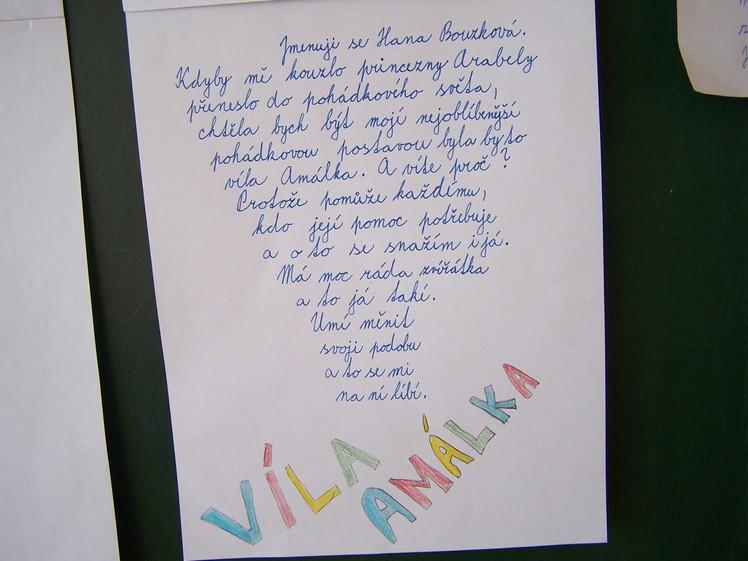 Jmenuji se Hana Bouzková.
Kdyby mě kouzlo princezny Arabely
přeneslo do pohádkového světa,
chtěla bych být mojí nejoblíbenější
pohádkovou postavou byla by to
víla Amálka. A víte proč?
Protože pomůže každému,
kdo její pomoc potřebuje
a o to se snažím i já.
Má moc ráda zvířátka
a to já také.
Umí měnit
svoji podobu
a to se mi
na ní líbí.
VÍLA AMÁLKA